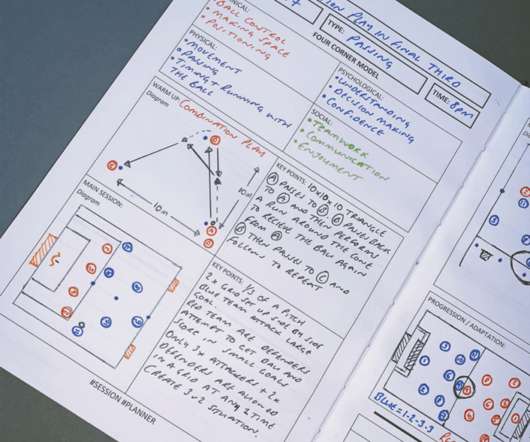 ION PLAY IN FINAL THIRD
TYPE:
PASSING
FOUR CORNER MODEL
TIME: 8pm
• BALL CONTROL
• MAKING SPACE
• POSITIONING
PHYSICAL:
• MOVEMENT
• PASSING
• TIMING & RUNNING WITH
THE BALL
PSYCHOLOGICAL:
• UNDERSTANDING
• DECISION MAKING
• CONFIDENCE
SOCIAL:
• TEAMWORK
• COMMUNICATION
• ENJOYMENT
WARM UP: COMBINATION PLAY
Diagram
10m
10m
KEY POINTS: 10x10x10 TRIANGLE
A PASSES TO B, B PASSES BACK
TO A AND THEN PERFORM
A RUN AROUND THE CONE
TO RECIEVE THE BALL AGAIN
FROM A
B THEN PASSES TO C AND
FOLLOWS TO REPEAT
MAIN SESSION:
Diagram
KEY POINTS: 1/3 OF A PITCH
SET UP SIDE BY SIDE
BLUE TEAM ATTACK LARGE
GOAL
RED TEAM ARE DEFENDERS
ATTEMPT TO GET BALL AND
SCORE IN SMALL GOALS
ONLY 3x ATTACKERS & 2x
DEFENDERS ARE ALLOWED
IN A GRID AT ANY 1 TIME
CREATE 3-2 SITUATION.
#SESSION #PLANNER
PROGRESSION / ADAPTATION:
BLUE = 1-2-3-3